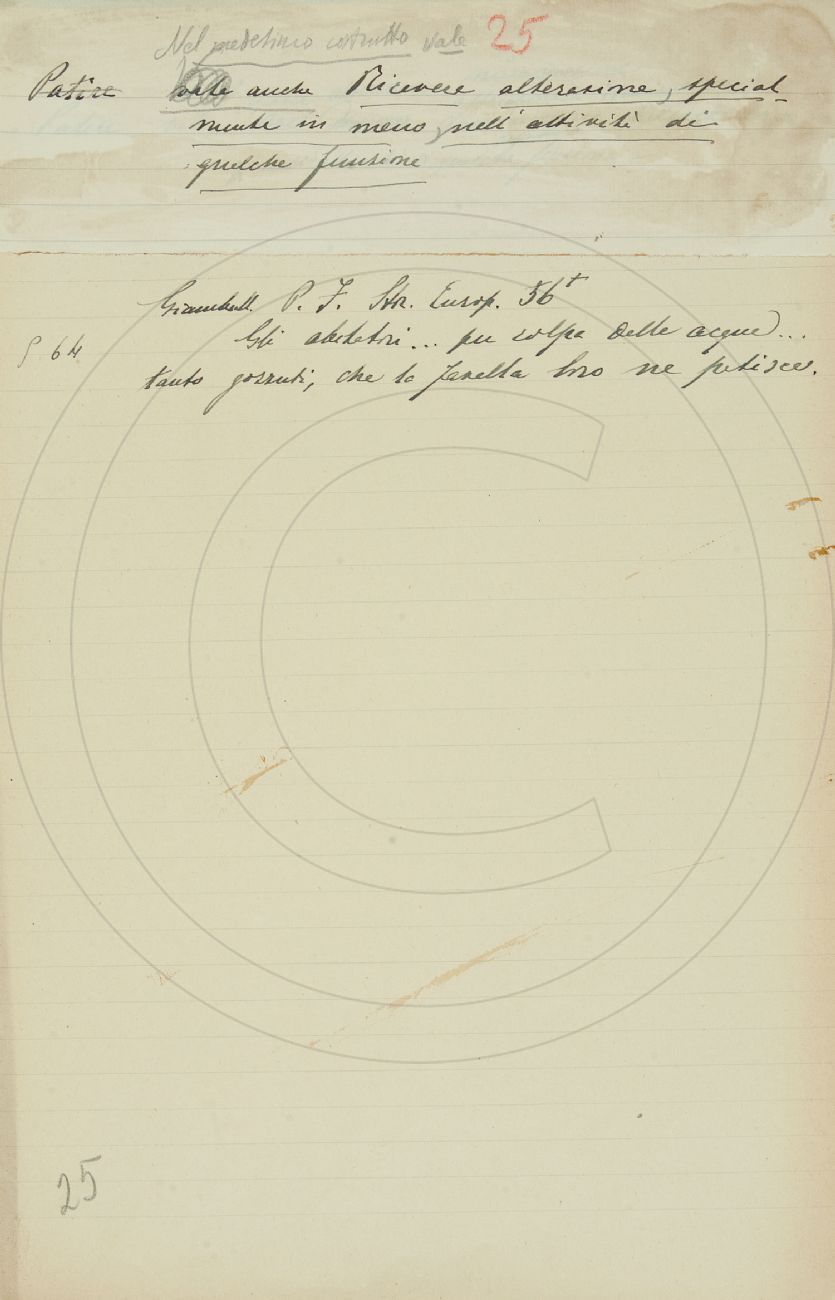 Nel medesimo costrutto vale 25
Patire vale anche Ricevere alterazione, special-
mente in meno, nell'attività di
qualche funzione
Giambull. P. F. Stor. Europ. 56t
Gli abitatori... per colpa delle acque)...
§ 64
tanto gozzuti, che la favella loro ne patisce.
25